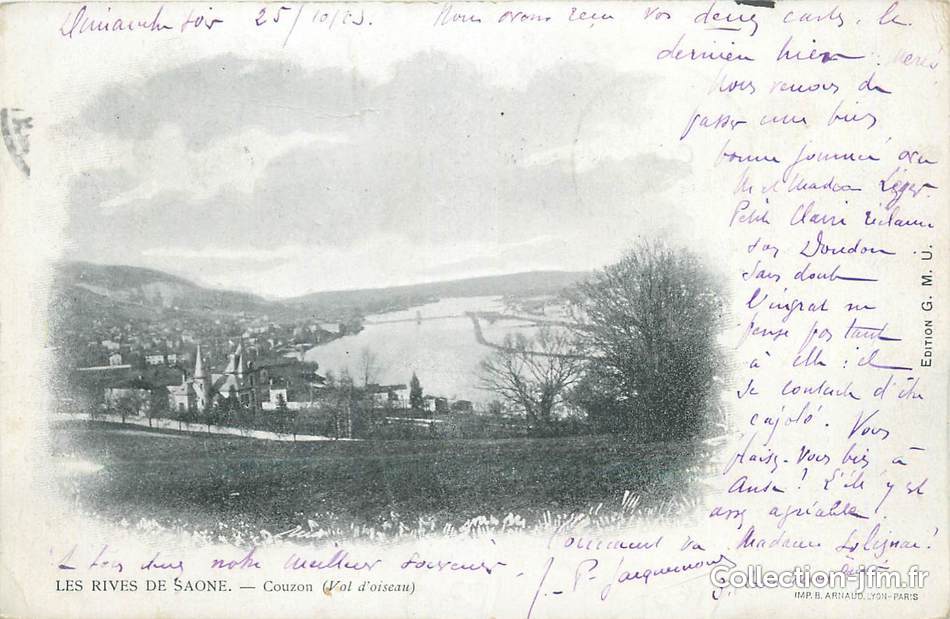 Dimanche soir 25/10/03. Nous avons reçu vos deux cartes, la
dernière hier. Merci
Nous venons de
passer une bien
bonne journée avec
M et Madame Léger.
Petite Claire réclame
son Doudou
Sans doute
l'ingrat ne
pense pas tant
à elle : il
se contente d'être
cajolé. Vous
plaisez-vous bien à
Anse ! L'été y est
assez agréable.
Comment va Madame Solignac !
A tous deux notre meilleur souvenir.
J. P. Jacquemond
EDITION G. M. U.
LES RIVES DE SAONE. — Couzon (Vol d'oiseau)
IMP. B. ARNAUD, LYON-PARIS
Collection-jfm.fr